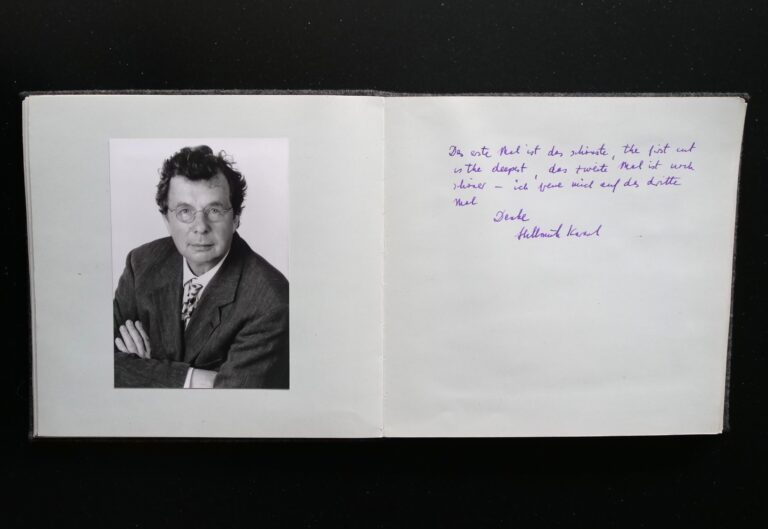 Das erste Mal ist das schönste, the first cut
is the deepest, das zweite Mal ist noch
schöner – ich freue mich auf das dritte
Mal
Danke
Hellmuth Karasek